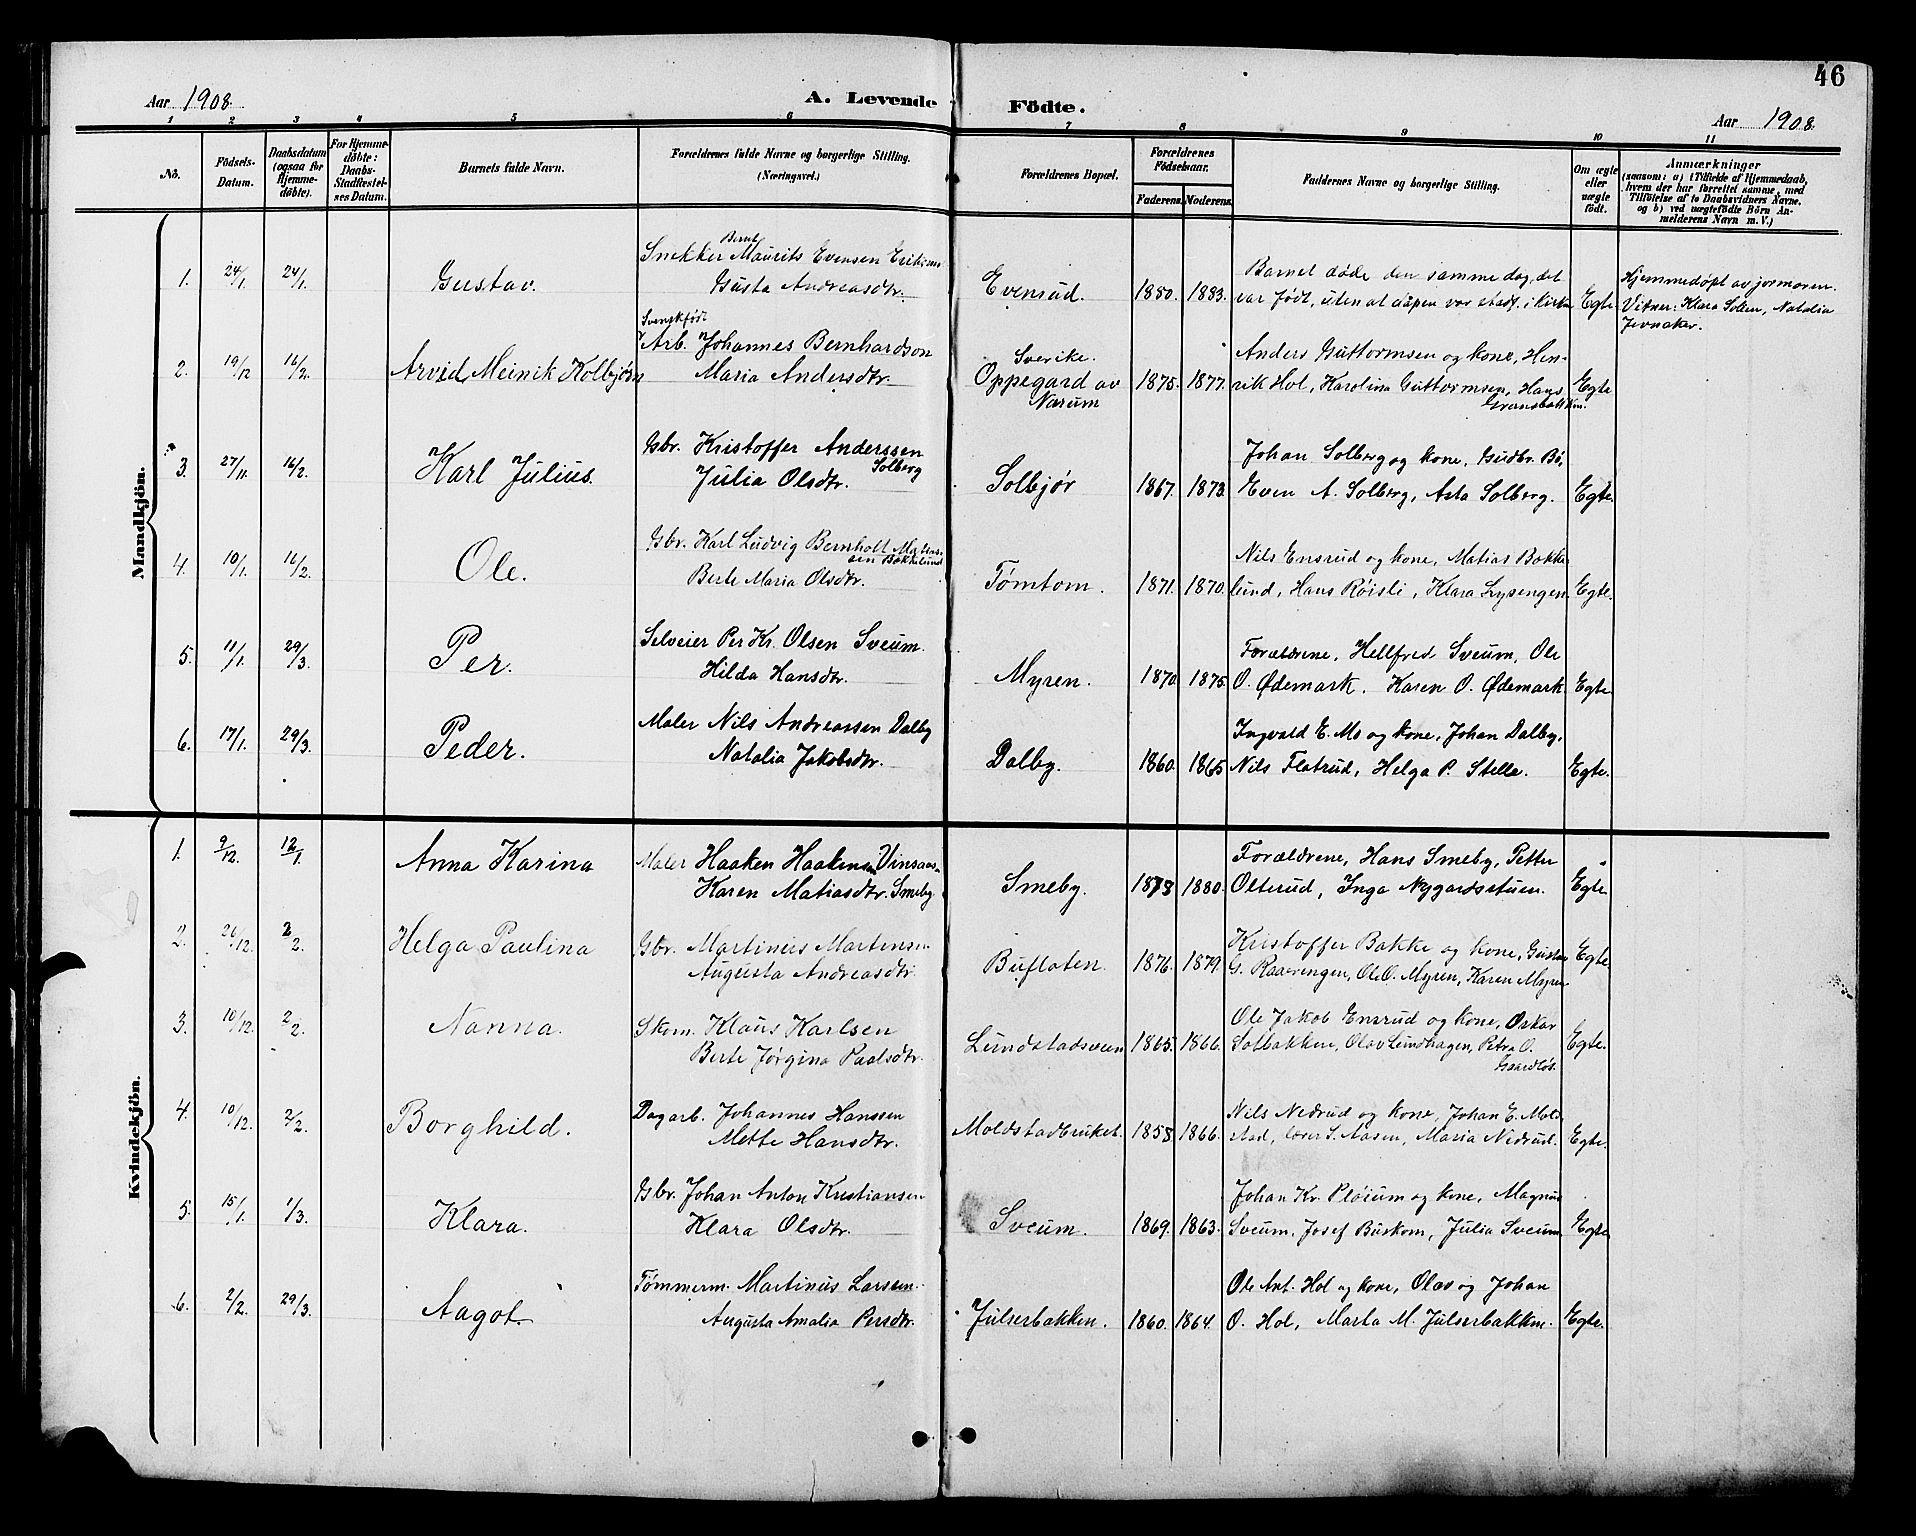 46
Aar 1908.
A. Levende Födte.
Aar 1908.
1 2 3 4 5 6 7 8 9 10 11
No.
Födsels-
Datum.
Daabsdatum
(ogsaa for
Hjemme-
döbte).
For Hjemme-
döbte:
Daabs-
Stadfæstel-
ses Datum.
Barnets fulde Navn.
Forældrenes fulde Navne og borgerlige Stilling.
(Næringsvei.)
Forældrenes Bopæl.
Forældrenes
Födselsaar.
Faderens. Moderens.
Faddernes Navne og borgerlige Stilling.
Om ægte
eller
uægte
født.
Anmærkninger
(saasom: a) i Tilfælde af Hjemmedaab,
hvem der har forrettet samme, med
Tilföielse af to Daabsvidners Navne.
og b) ved uægtefödte Börn An-
melderens Navn m. V.)
Mandkjön.
1. 24/1. 24/1. Gustav.
Bernt
Snekker Maurits Evensen Eriksen
Gusta Andreasdtr.
Evensud. 1850. 1883.
Barnet døde den samme dag, det
var født, uten at dåpen var stadf. i kirken
Egte
Hjemmedøpt av jormoren.
Vitner: Klara Solien, Natalia
Jevnaker.
2. 19/12 16/2. Arvid Meinik Kolbjørn
Svenskfødt
Arb. Johannes Bernhardson
Maria Andersdtr.
Sverike.
Oppegard av
Narum
1875. 1877.
Anders Guttormsen og kone, Hen-
rik Hol, Karolina Guttormsen, Hans
Gransbakken.
Egte
3. 27/11. 16/2. Karl Julius.
Gbr. Kristoffer Anderssen
Solberg
Julia Olsdtr.
Solbjør 1867. 1873.
Johan Solberg og kone, Gudbr. Bø,
Even A. Solberg, Asta Solberg.
Egte.
4. 10/1. 16/2. Ole.
Gbr. Karl Ludvig Bernholt Matias-
sen Bakkelund
Berte Maria Olsdtr.
Tømtom. 1871. 1870.
Nils Ensrud og kone, Matias Bakke
lund, Hans Røisli, Klara Lysengen.
Egte.
5. 11/1. 29/3. Per.
Selveier Per Kr. Olsen Sveum.
Hilda Hansdtr.
Myren. 1870. 1875.
Forældrene, Hellfred Sveum, Ole
O. Ødemark, Karen O. Ødemark
Egte
6. 17/1. 29/3. Peder.
Maler Nils Andreassen Dalby
Natalia Jakobsdtr.
Dalby. 1860. 1865
Ingvald E. Mo og kone, Johan Dalby,
Nils Flatrud, Helga P. Stelle.
Egte.
Kvindekjön.
1. 9/12. 12/1. Anna Karina
Maler Haaken Haakensen Vinsaas
Karen Matiasdtr. Smeby.
Smeby. 1878 1880.
Forældrene, Hans Smeby, Petter
Olterud, Inga Nygardsstuen.
Egte
2. 26/12. 2/2. Helga Paulina
Gbr. Martinus Martinsen
Augusta Andreasdtr.
Buflaten. 1876. 1879.
Kristoffer Bakke og kone, Gustav
G. Raaerengen, Ole O. Myren, Karen Myren
Egte
3. 10/12. 2/2. Nanna.
Skom. Klaus Karlsen
Berte Jørgina Paalsdtr.
Lundstadsveen 1865. 1866.
Ole Jakob Ensrud og kone, Oskar
Solbakken, Olav Lundhagen, Petra O.
Gaardløs.
Egte.
4. 10/12. 2/2. Borghild.
Dagarb. Johannes Hanssen
Mette Hansdtr.
Moldstadbruket. 1858. 1866.
Nils Nedrud og kone, Johan E. Mold-
stad, lærer S. Aasen, Maria Nedrud.
Egte.
5. 15/1. 1/3. Klara.
Gbr. Johan Anton Kristiansen
Klara Olsdtr.
Sveum. 1869. 1863.
Johan Kr. Pløium og kone, Magnus
Sveum, Josef Buskom, Julia Sveum
Egte
6. 2/2. 29/3. Aagot.
Tømmerm. Martinus Larssen.
Augusta Amalia Persdtr.
Julserbakken. 1860. 1864.
Ole Ant. Hol og kone, Olav og Johan
O. Hol, Marta M. Julserbakken.
Egte.